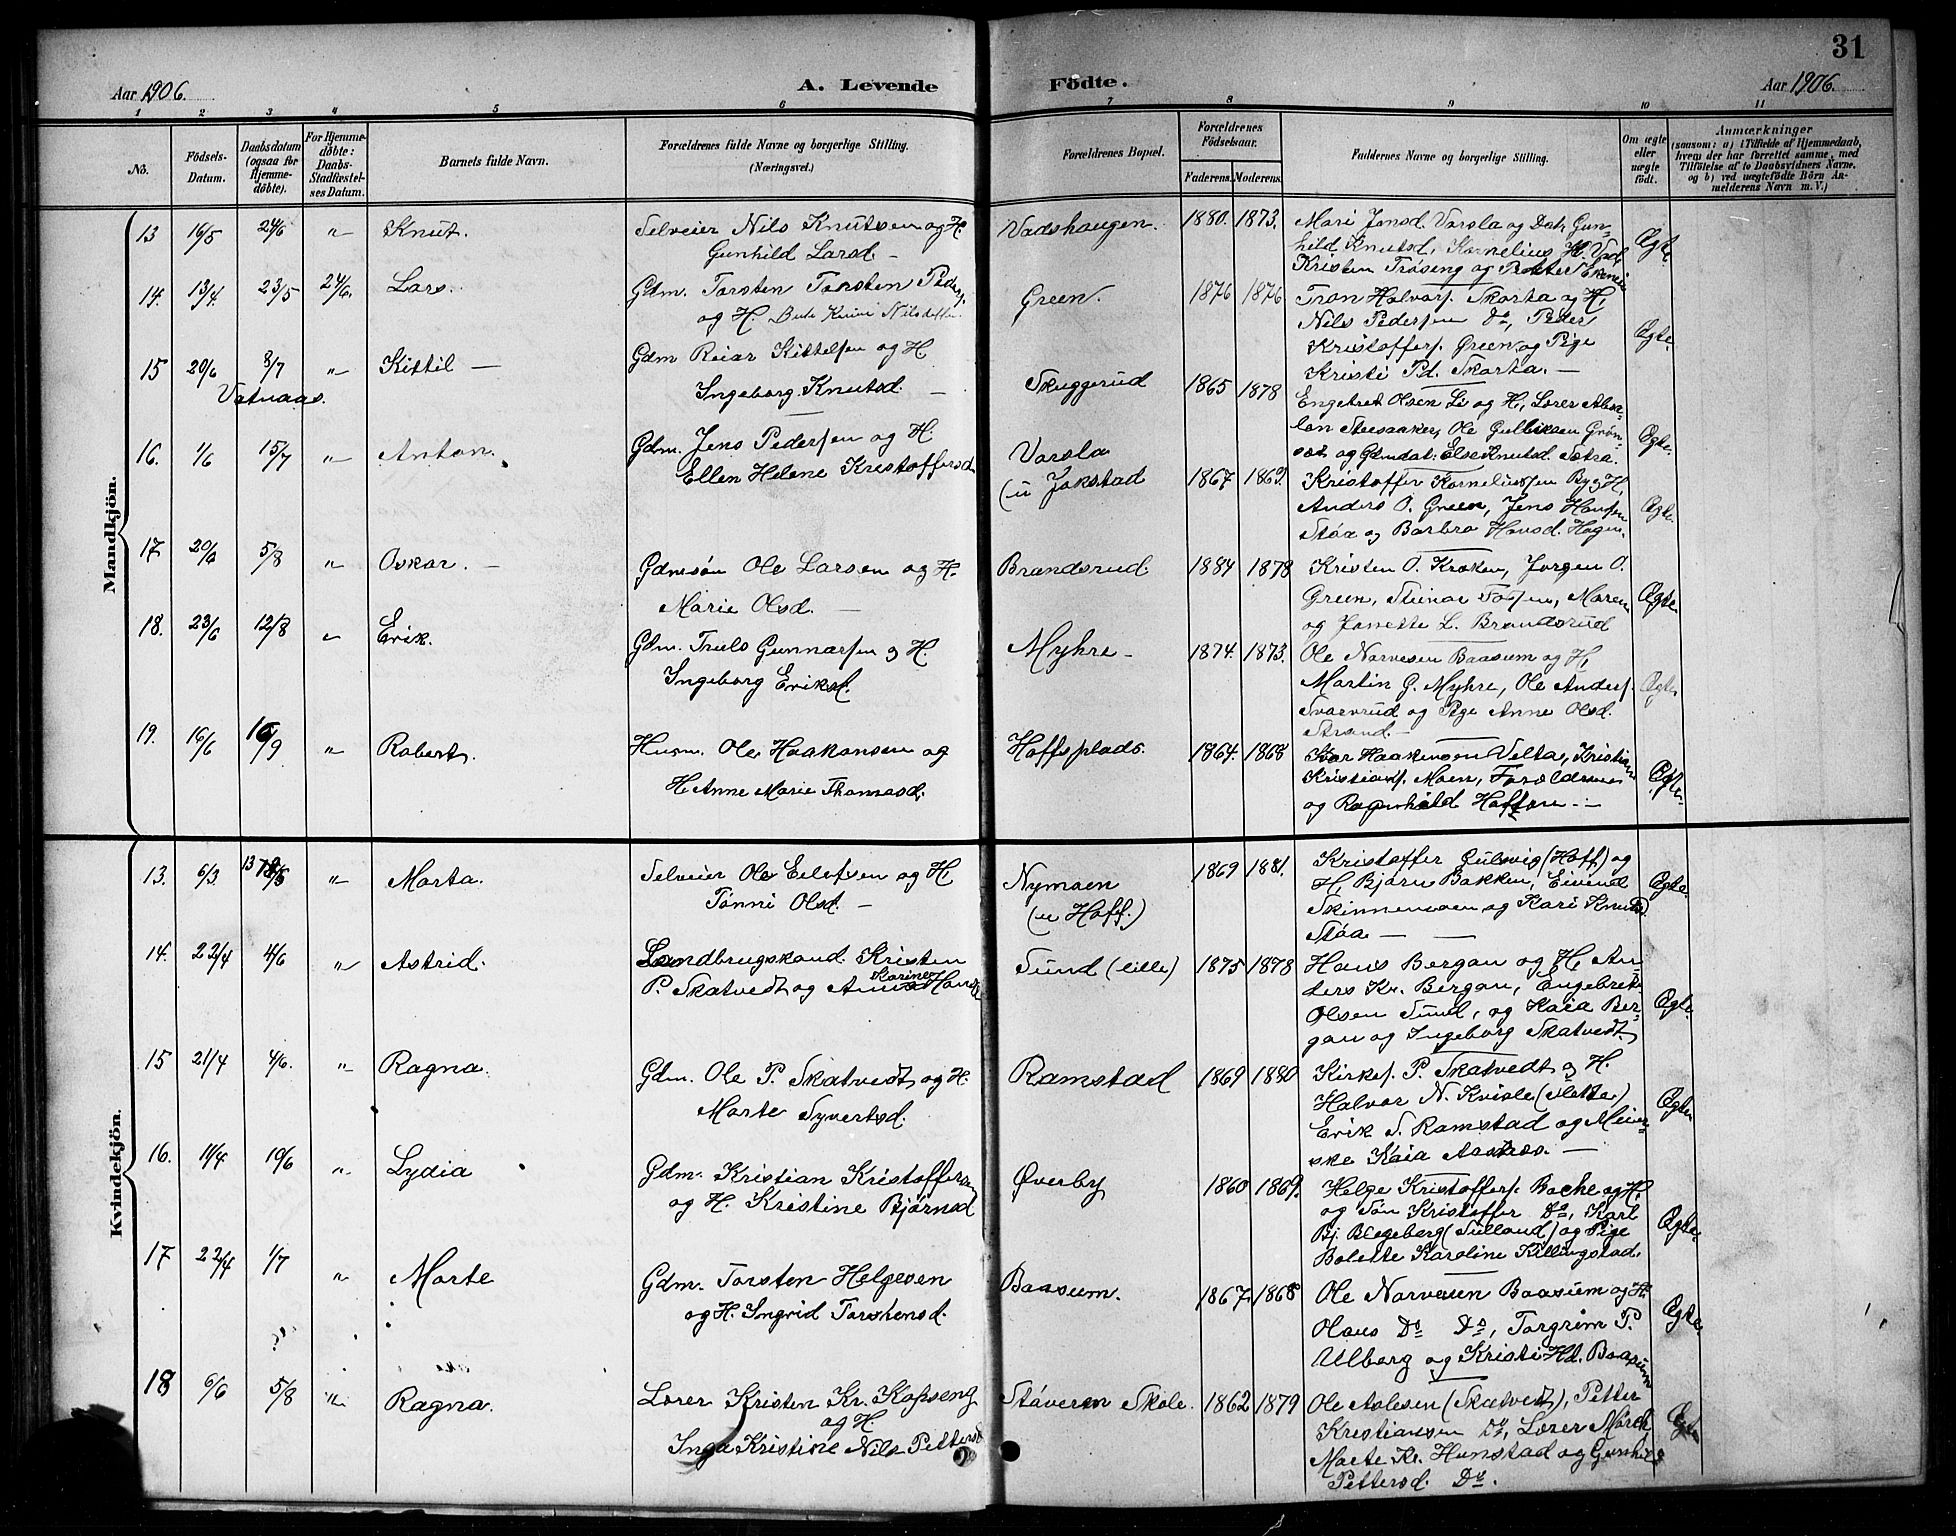 31
Aar 1906.
A. Levende
Födte.
Aar 1906.
1 2 3 4 5 6 7 8 9 10 11
No.
Födsels-Datum.
Daabsdatum (ogsaa for Hjemme-døbte).
For Hjemme-døbte: Daabs-Stadfæstel-ses Datum.
Barnets fulde Navn.
Forældrenes fulde Navne og borgerlige Stilling.
(Næringsvei.)
Forældrenes Bopæl.
Forældrenes Födselsaar.
Faderens. Moderens.
Faddernes Navne og borgerlige Stilling.
Om ægte eller uægte födt.
Anmærkninger
(saasom: a) i Tilfælde af Hjemmedaab,
hvem der har forrettet samme, med
Tilföielse af to Daabsvidners Navne.
og b) ved uægtefödte Börn An-
melderens Navn m. V.)
Mandkjön.
13 16/5 24/6 " Knut. Selveier Nils Knutsen og H. Vadshaugen. 1880. 1873. Mari Jonsd. Varsla og Datr. Gun-
Gunhild Larsd. — hild Knutsd, Kornelius H.
Kristen Trøseng og Petter Ekeneie
Ægte.
14. 13/4 23/5 24/6. Lars. Gdm. Torsten Torsten Peders. Green. 1876 1876 Tron Halvors. Skarta og H,
og H. Nilsdatter. Nils Pedersen Do, Peder
Kristoffers. Green og Pige
Kristi Pd. Skarta. —
Ægte.
15 20/6 8/7 " Kittil — Gdm Reiar Kittelsen og H Skuggerud 1865 1878
Vatnaas. Ingeborg Knutsd. — Engebret Olsen Li og H, Lærer
Steesaaker, Ole Gulliksen Grøn-
og Gdmdat. Else Knutsd. Sætra.
Ægte.
16. 1/6 15/7 " Anton. Gdm. Jens Pedersen og H. Varsla
Ellen Helene Kristoffersd. (u Jokstad 1867 1869. Kristoffer Korneliussen By og H,
Anders O. Green, Jens Hansen
Støa og Barbro Hansd. Hagen.
Ægte.
17. 20/6 5/8 " Oskar. — Gdmsøn Ole Larsen og H. Brandsrud 1884 1878 Kristen O. Kroken, Jørgen O.
Marie Olsd. — Green, Steinar Fossen, Maren
og Janette L. Brandsrud
Ægte.
18. 23/6 12/8 " Erik. Gdm. Truls Gunnarsen og H. Myhre — 1874. 1873. Ole Narvesen Baasum og H,
Ingeborg Eriksd. Martin G. Myhre, Ole Anders.
Svarverud og Pige Anne Olsd.
Strand. —
Ægte.
19. 16/6 16/9 " Robert. Husm. Ole Haakonsen og Hoffsplads. 1864. 1868 Ivar Haakensen Velta, Kristian
H. Anne Marie Thomasd. Kristians. Moen, Forældrene
og Ragnhild Hoffsen. —
Ægte.
Kvindekjön.
13. 6/3 13/5 " Marta. Selveier Ole Eilefsen og H, Nymoen 1869 1881. Kristoffer Gulsvig (Hoff) og
Tønni Olsd. — (u Hoff.) H, Bjørn Bakken, Eivind
Skinnemoen og Kari Knutsd.
Støa — —
Ægte.
14. 22/4 4/6 " Astrid. Landbrugskand. Kristen Sund (lille) 1875 1878 Hans Bergan og H, An-
P. Skatvedt og Anna Karine Hansd. ders Kr. Bergan, Engebret
Olsen Sund, og Kaia Ber-
gan og Ingeborg Skatvedt.
Ægte.
15 21/4 4/6. " Ragna. Gdm. Ole P. Skatvedt og H. Ramstad 1869 1880 Kirkes. P. Skatvedt og H.
Marte Syvertsd. Halvor N. Kvisle (Mette)
Erik S. Ramstad og Meier-
ske Kaia Aasnæs. —
Ægte.
16. 11/4 10/6 " Lydia Gdm. Kristian Kristoffersen Øverby 1860 1869. Helge Kristoffers. Bache og H,
og H. Kristine Bjørnsd og Søn Kristoffer Do, Karl
Bj. Blegeberg (Sulland) og Pige
Bolette Karoline Killingstad.
Ægte.
17 22/4 1/7 " Marte Gdm. Torsten Helgesen Baasum. 1867. 1868 Ole Narvesen Baasum og H.
og H. Ingrid Torstensd. Olaus Do Do, Torgrim P.
Ulberg og Kristi Hd. Baasum
Ægte.
18 6/6 5/8 " Ragna. Lærer Kristen Kr. Kopseng Støveren Skole. 1862 1879 Ole Aslesen (Skatvedt), Petter
og H. Kristiansen Do, Lærer Mørck
Inga Kristine Nils Pettersd Marte Kr. Hunstad og Gunhild
Pettersd. Do.
Ægte